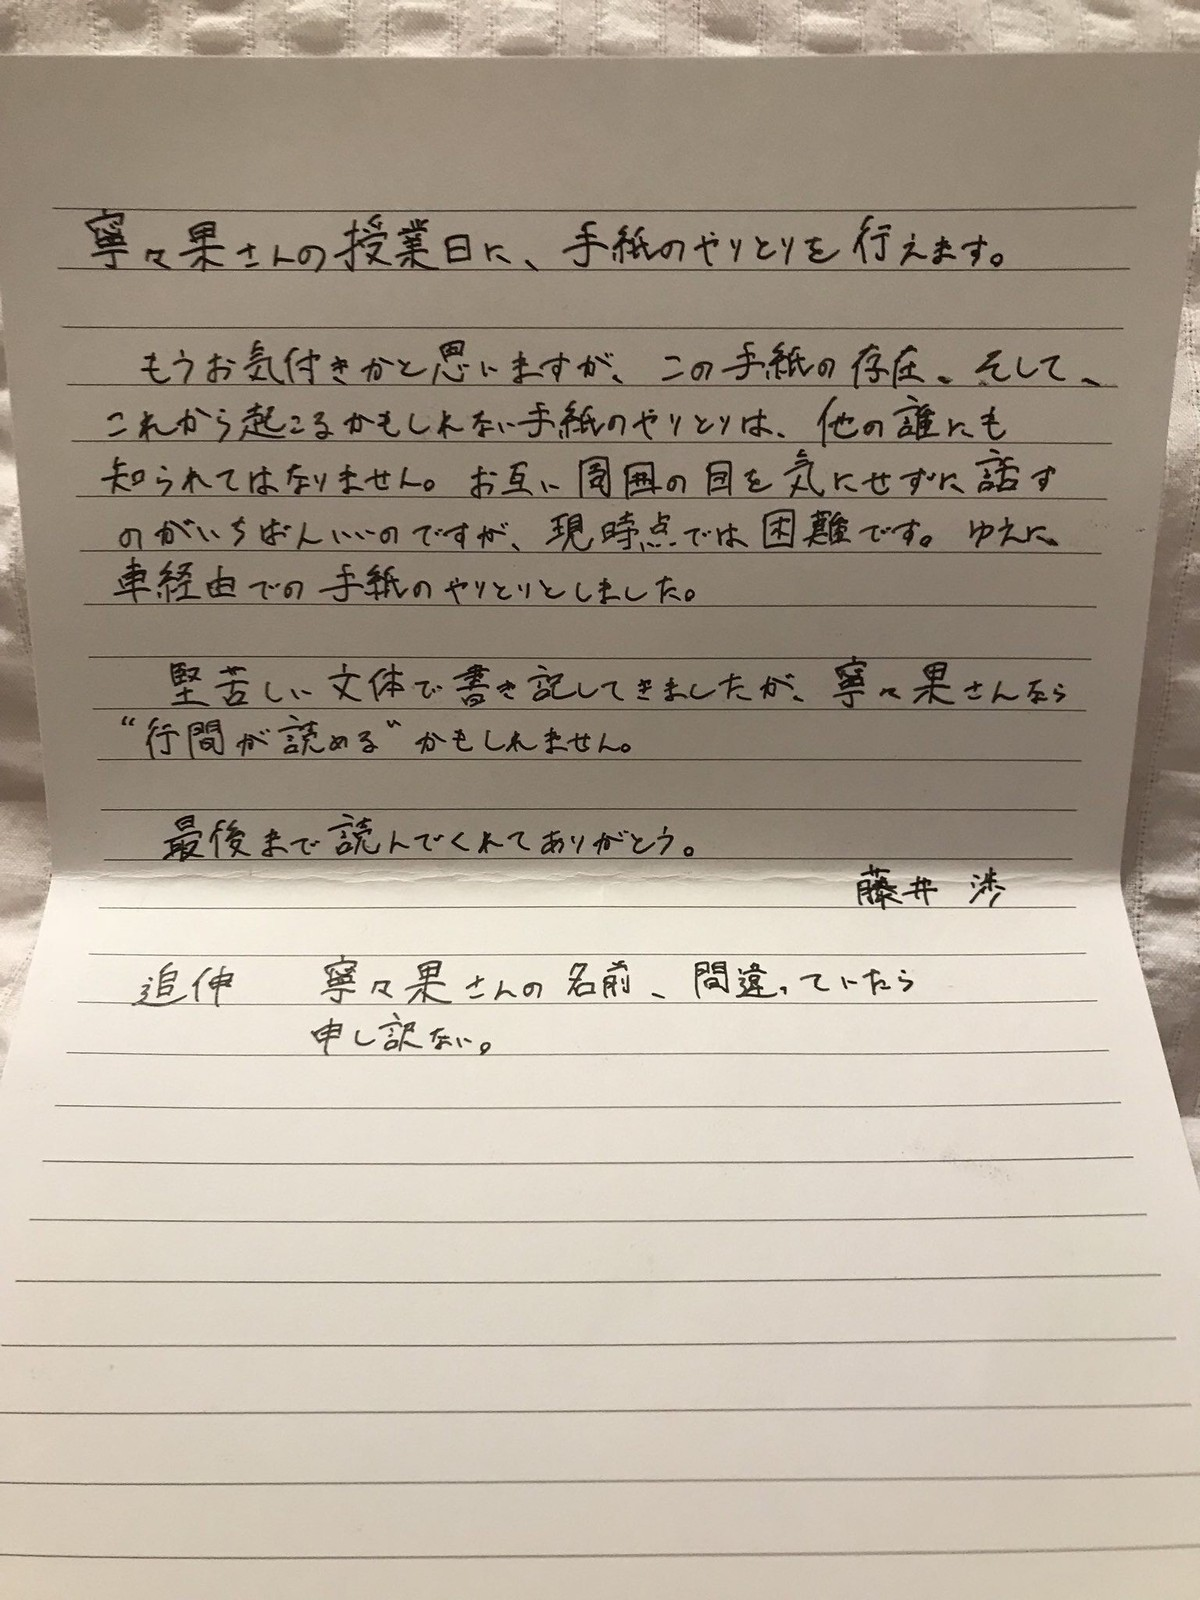 寧々果さんの授業日に、手紙のやりとりを行えます。
もうお気付きかと思いますが、この手紙の存在、そして、
これから起こるかもしれない手紙のやりとりは、他の誰にも
知られてはなりません。お互い周囲の目を気にせずに話す
のがいちばんいいのですが、現時点では困難です。ゆえに、
車経由での手紙のやりとりとしました。
堅苦しい文体で書き記してきましたが、寧々果さんなら
“行間が読める”かもしれません。
最後まで読んでくれてありがとう。
藤井 渉
追伸 寧々果さんの名前、間違っていたら
申し訳ない。